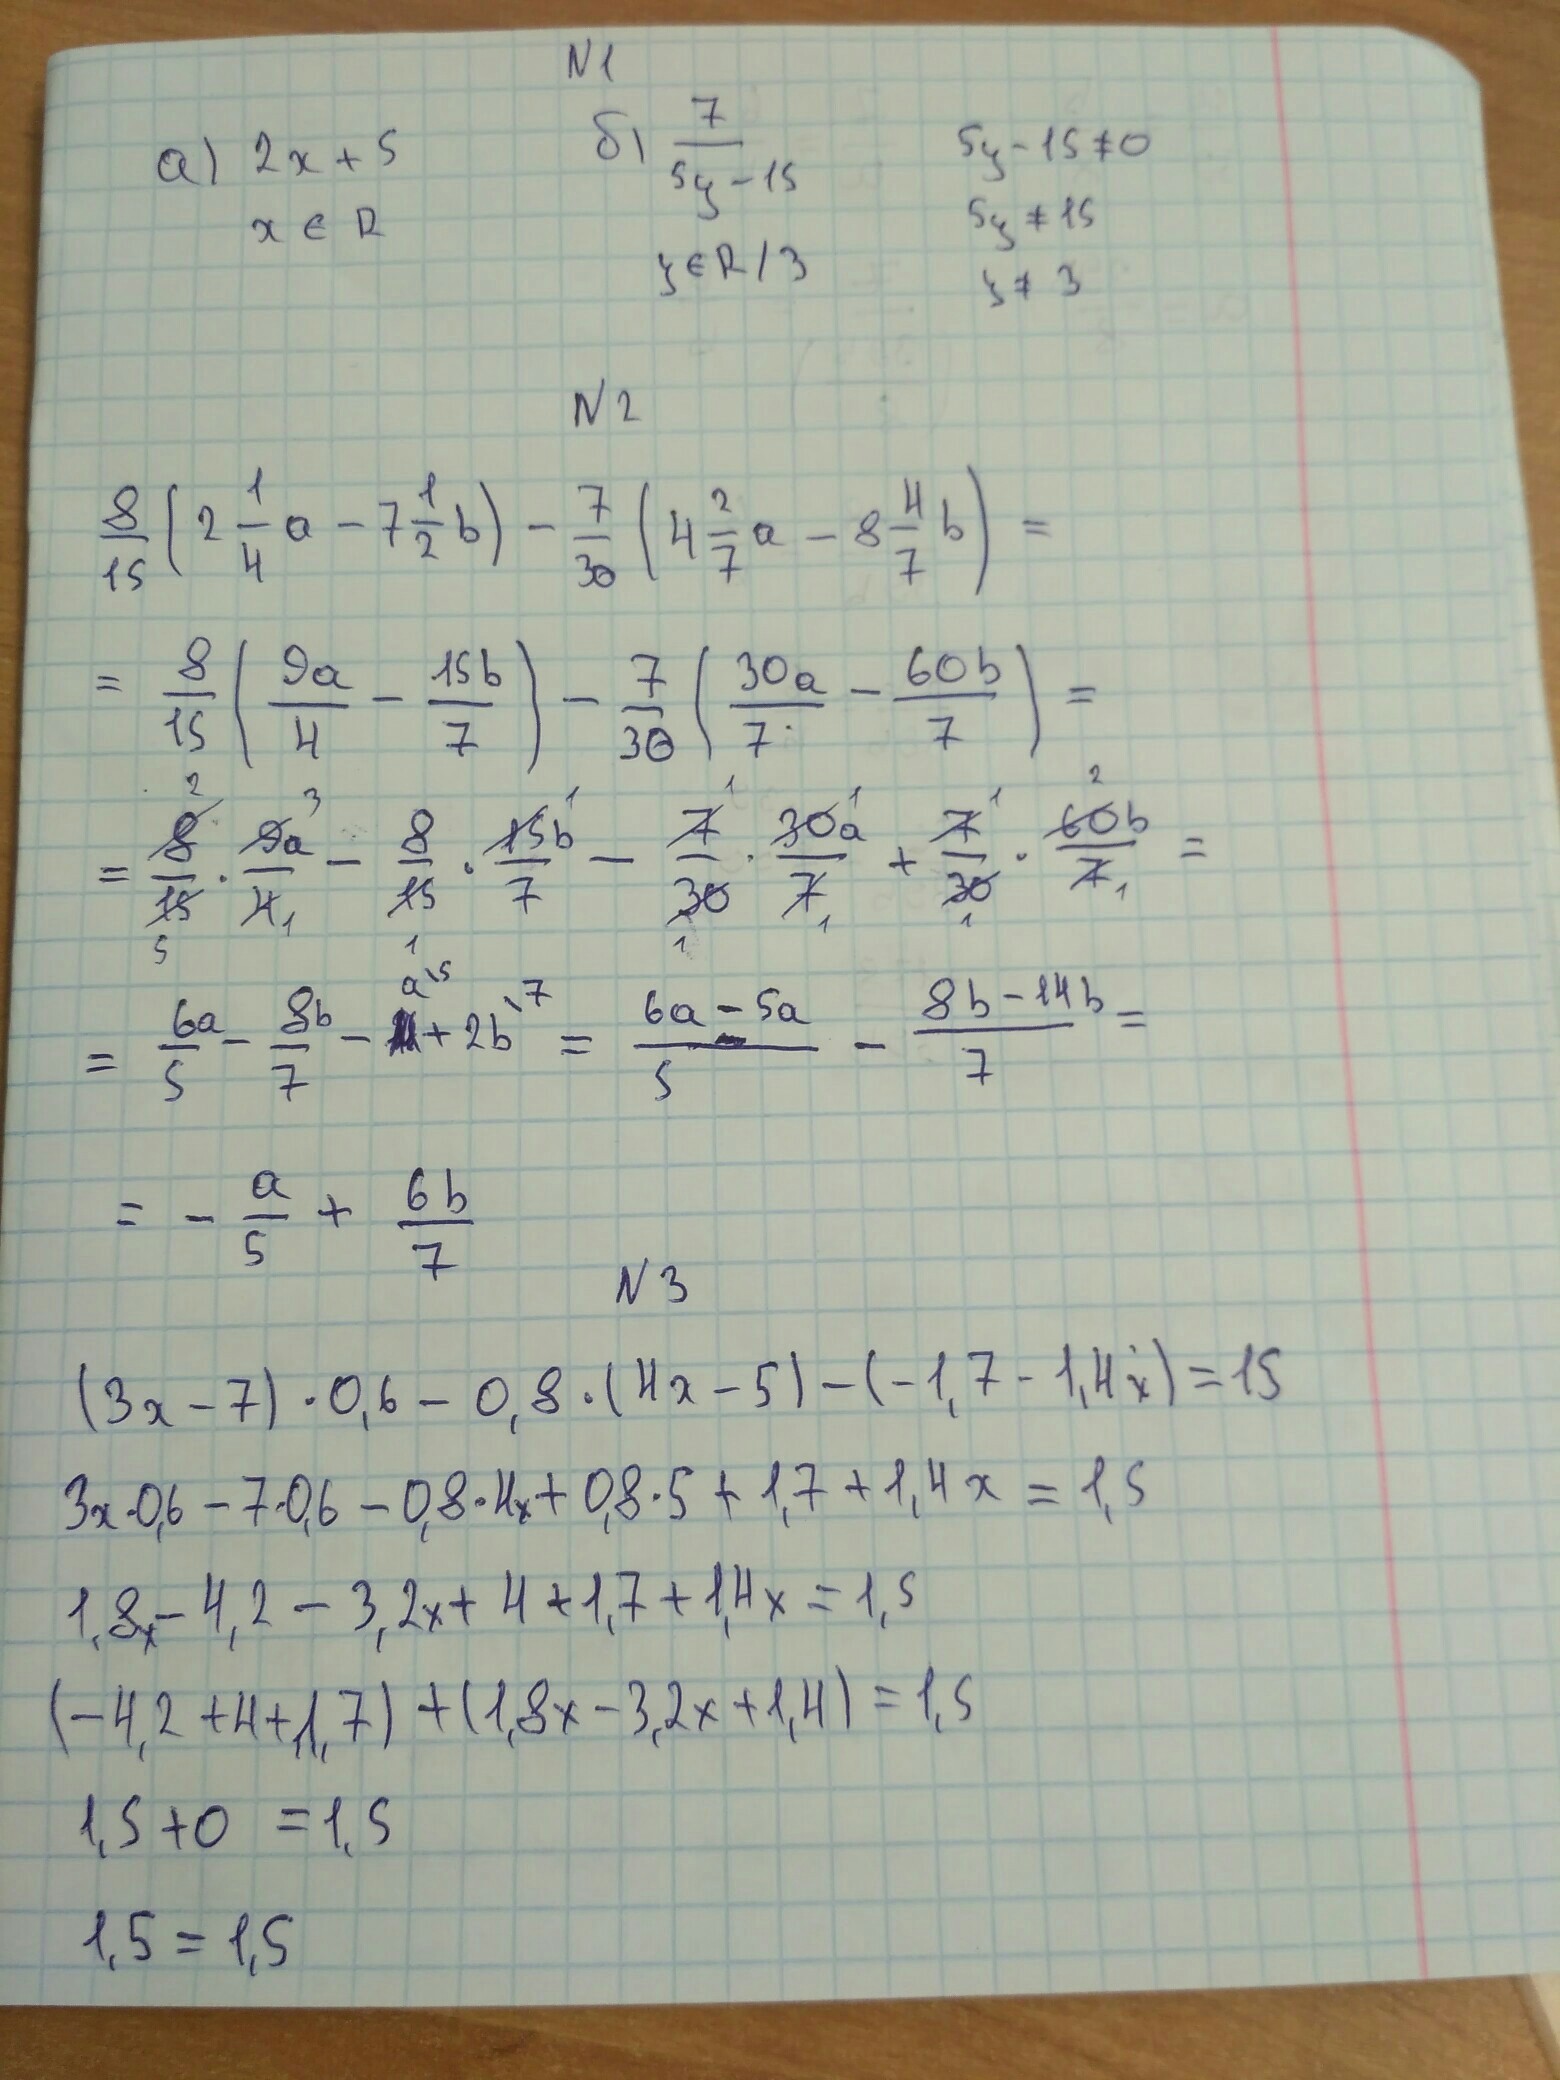 N1
а) 2x + 5
x ∈ R
б) 7/(5y - 15)
y ∈ R / 3
5y - 15 ≠ 0
5y ≠ 15
y ≠ 3
N2
8/15 (2 1/4 a - 7 1/2 b) - 7/30 (4 2/7 a - 8 4/7 b) =
= 8/15 (9a/4 - 15b/7) - 7/30 (30a/7 - 60b/7) =
= 8/15 · 9a/4 - 8/15 · 15b/7 - 7/30 · 30a/7 + 7/30 · 60b/7 =
= 6a/5 - 8b/7 - a\5 + 2b\7 = (6a - 5a)/5 - (8b - 14b)/7 =
= - a/5 + 6b/7
N3
(3x - 7) · 0,6 - 0,8 · (4x - 5) - (-1,7 - 1,4x) = 15
3x·0,6 - 7·0,6 - 0,8·4x + 0,8·5 + 1,7 + 1,4x = 1,5
1,8x - 4,2 - 3,2x + 4 + 1,7 + 1,4x = 1,5
(-4,2 + 4 + 1,7) + (1,8x - 3,2x + 1,4) = 1,5
1,5 + 0 = 1,5
1,5 = 1,5